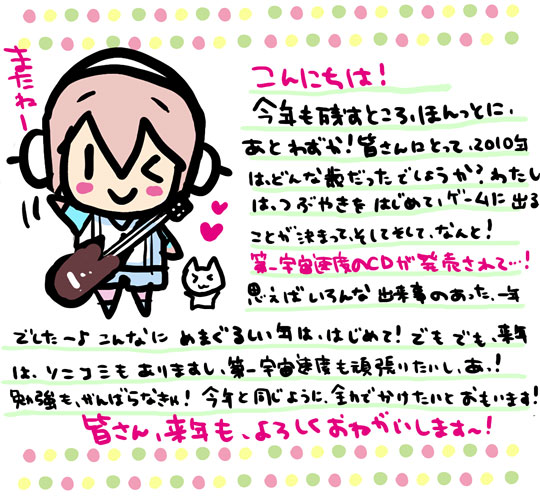 またねー
こんにちは!
今年も残すところ、ほんっとに、
あとわずか!皆さんにとって、2010年
は、どんな歳だったでしょうか?わたし
は、つぶやきをはじめて、ゲームに出る
ことが決まって、そしてそして、なんと!
第一宇宙速度のCDが発売されて…!
思えばいろんな出来事のあった、一年
でしたーよ こんなに めまぐるしい年は、はじめて!でもでも、来年
は、ソニコミもありますし、第一宇宙速度も頑張りたいし、あっ!
勉強も、がんばらなきゃ!今年と同じように、全力でかけたいとおもいます!
皆さん、来年も、よろしくおねがいします〜!